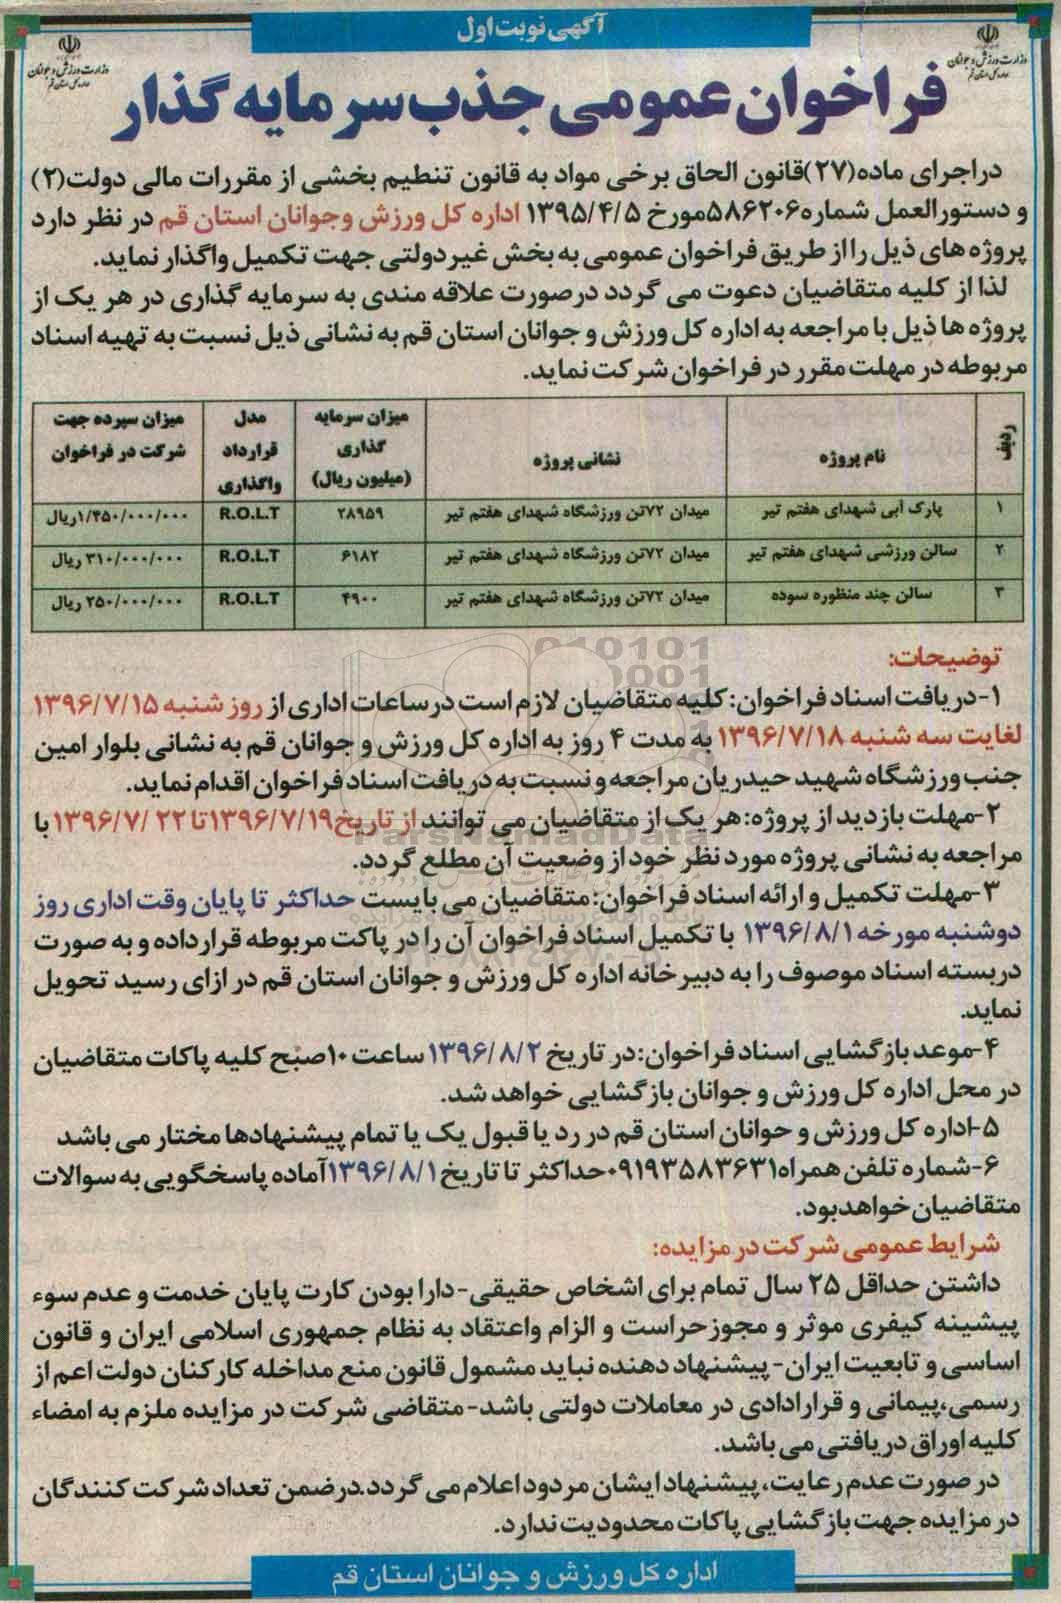 آگهی نوبت اول
وزارت ورزش و جوانان
اداره کل استان قم
وزارت ورزش و جوانان
اداره کل استان قم
فراخوان عمومی جذب سرمایه گذار
دراجرای ماده(۲۷)قانون الحاق برخی مواد به قانون تنظیم بخشی از مقررات مالی دولت(۲)
و دستورالعمل شماره۵۸۶۲۰۶مورخ ۱۳۹۵/۴/۵ اداره کل ورزش وجوانان استان قم در نظر دارد
پروژه های ذیل را از طریق فراخوان عمومی به بخش غیردولتی جهت تکمیل واگذار نماید.
لذا از کلیه متقاضیان دعوت می گردد درصورت علاقه مندی به سرمایه گذاری در هر یک از
پروژه ها ذیل با مراجعه به اداره کل ورزش و جوانان استان قم به نشانی ذیل نسبت به تهیه اسناد
مربوطه در مهلت مقرر در فراخوان شرکت نماید.
ردیف | نام پروژه | نشانی پروژه | میزان سرمایه گذاری (میلیون ریال) | مدل قرارداد واگذاری | میزان سپرده جهت شرکت در فراخوان
۱ | پارک آبی شهدای هفتم تیر | میدان ۷۲تن ورزشگاه شهدای هفتم تیر | ۲۸۹۵۹ | R.O.L.T | ۱/۴۵۰/۰۰۰/۰۰۰ریال
۲ | سالن ورزشی شهدای هفتم تیر | میدان ۷۲تن ورزشگاه شهدای هفتم تیر | ۶۱۸۲ | R.O.L.T | ۳۱۰/۰۰۰/۰۰۰ ریال
۳ | سالن چند منظوره سوده | میدان ۷۲تن ورزشگاه شهدای هفتم تیر | ۴۹۰۰ | R.O.L.T | ۲۵۰/۰۰۰/۰۰۰ ریال
توضیحات:
۱-دریافت اسناد فراخوان: کلیه متقاضیان لازم است درساعات اداری از روز شنبه ۱۳۹۶/۷/۱۵
لغایت سه شنبه ۱۳۹۶/۷/۱۸ به مدت ۴ روز به اداره کل ورزش و جوانان قم به نشانی بلوار امین
جنب ورزشگاه شهید حیدریان مراجعه و نسبت به دریافت اسناد فراخوان اقدام نماید.
۲-مهلت بازدید از پروژه: هر یک از متقاضیان می توانند از تاریخ۱۳۹۶/۷/۱۹تا ۲۲ /۱۳۹۶/۷ با
مراجعه به نشانی پروژه مورد نظر خود از وضعیت آن مطلع گردد.
۳-مهلت تکمیل و ارائه اسناد فراخوان: متقاضیان می بایست حداکثر تا پایان وقت اداری روز
دوشنبه مورخه ۱۳۹۶/۸/۱ با تکمیل اسناد فراخوان آن را در پاکت مربوطه قرار داده و به صورت
دربسته اسناد موصوف را به دبیرخانه اداره کل ورزش و جوانان استان قم در ازای رسید تحویل
نماید.
۴-موعد بازگشایی اسناد فراخوان: در تاریخ ۱۳۹۶/۸/۲ ساعت ۱۰صبح کلیه پاکات متقاضیان
در محل اداره کل ورزش و جوانان بازگشایی خواهد شد.
۵-اداره کل ورزش و حوانان استان قم در رد یا قبول یک یا تمام پیشنهادها مختار می باشد
۶-شماره تلفن همراه۰۹۱۹۳۵۸۳۶۳۱حداکثر تا تاریخ ۱۳۹۶/۸/۱آماده پاسخگویی به سوالات
متقاضیان خواهدبود.
شرایط عمومی شرکت در مزایده:
داشتن حداقل ۲۵ سال تمام برای اشخاص حقیقی-دارا بودن کارت پایان خدمت و عدم سوء
پیشینه کیفری موثر و مجوزحراست و الزام واعتقاد به نظام جمهوری اسلامی ایران و قانون
اساسی و تابعیت ایران- پیشنهاد دهنده نباید مشمول قانون منع مداخله کارکنان دولت اعم از
رسمی،پیمانی و قرارادادی در معاملات دولتی باشد- متقاضی شرکت در مزایده ملزم به امضاء
کلیه اوراق دریافتی می باشد.
در صورت عدم رعایت، پیشنهاد ایشان مردود اعلام می گردد.درضمن تعداد شرکت کنندگان
در مزایده جهت بازگشایی پاکات محدودیت ندارد.
اداره کل ورزش و جوانان استان قم
ParsNamadData